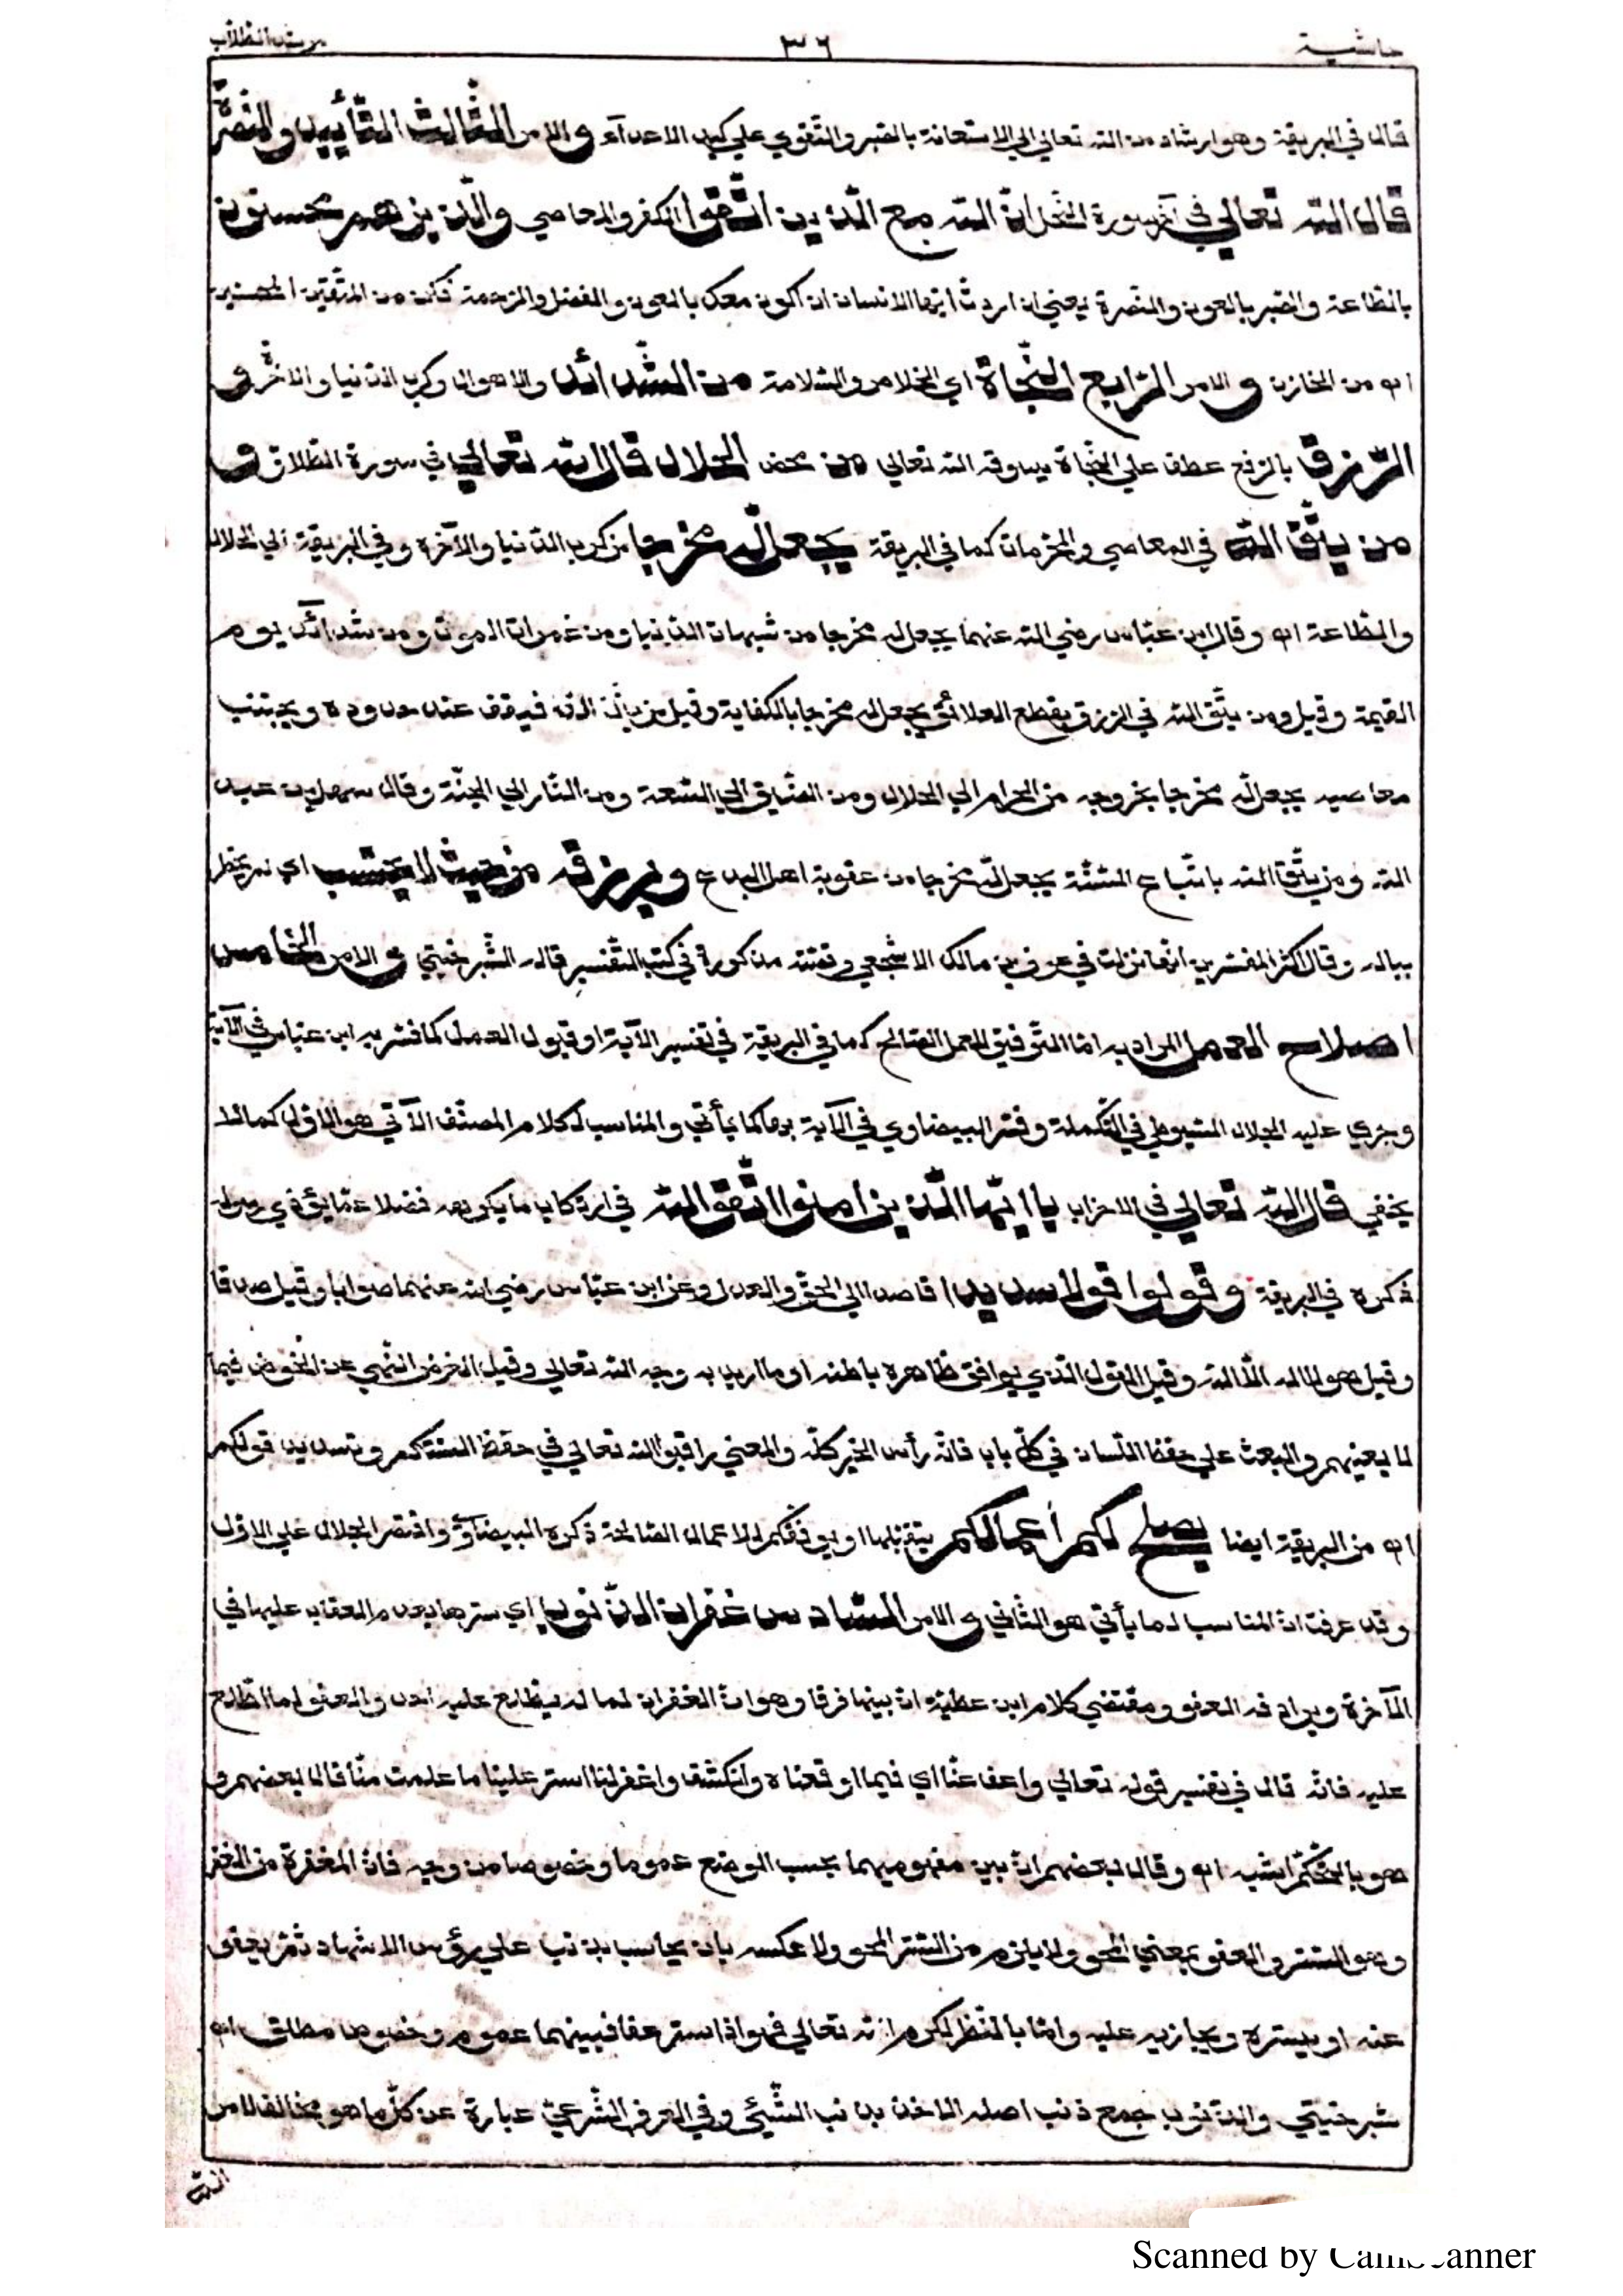 حاشية ٣٦ مرشد الطلاب
قال في البريقة وهو ارشاد من الله تعالي الي الاستعانة بالصبر والتقوي علي كيد الاعدآء و الامر الثالث التأييد والنصرة
قال الله تعالي في آخر سورة النحل ان الله مع الذين اتقوا الكفر والمعاصي والذين هم محسنون
بالطاعة والصبر بالعون والنصرة يعني ان اردت ايها الانسان ان اكون معك بالعون والفضل والرحمة فكن من المتقين المحسنين
اه من الخازن و الامر الرابع النجاة اي الخلاص والسلامة من الشدائد والاهوال وكرب الدنيا والاخرة و
الرزق بالرفع عطف علي النجاة يسوقه الله تعالي من محض الحلال قال الله تعالي في سورة الطلاق و
من يتق الله في المعاصي والمحرمات كما في البريقة يجعل له مخرجا من كرب الدنيا والآخرة وفي البريقة الي الحلال
والطاعة اه وقال ابن عباس رضي الله عنهما يجعل له مخرجا من شبهات الدنيا ومن غمرات الموت ومن شدائد يوم
القيمة وقيل ومن يتق الله في الرزق بقطع العلائق يجعل له مخرجا بالكفاية وقيل من يتق الله فيقف عند حدوده ويجتنب
معاصيه يجعل له مخرجا يخرجه من الحرام الي الحلال ومن الضيق الي السعة ومن النار الي الجنة وقال سهل بن عبد
الله ومن يتق الله باتباع السنة يجعل له مخرجا من عقوبة اهل البدع ويرزقه من حيث لا يحتسب اي لم يخطر
بباله وقال اكثر المفسرين انها نزلت في عوف بن مالك الاشجعي وقصته مذكورة في كتب التفسير قاله الشبرخيتي و الامر الخامس
اصلاح العمل المراد به اما التوفيق للعمل الصالح كما في البريقة في تفسير الآية او قبول العمل كما فسر به ابن عباس في الآية
وجري عليه الجلال السيوطي في التكملة وفسر البيضاوي في الآية بهما كما يأتي والمناسب لكلام المصنف الآتي هو الاول كما لا
يخفي قال الله تعالي في الاحزاب يا ايها الذين امنوا اتقوا الله في ارتكاب ما يكرهه فضلا عما يؤذي رسوله
ذكره في البريقة وقولوا قولا سديدا قاصدا الي الحق والعدل وعن ابن عباس رضي الله عنهما صوابا وقيل صدقا
وقيل هو لا اله الا الله وقيل القول الذي يوافق ظاهره باطنه او ما اريد به وجه الله تعالي وقيل الغرض النهي عن الخوض فيما
لا يعنيهم والبعث علي حفظ اللسان في كل باب فانه رأس الخير كله والمعني راقبوا الله تعالي في حفظ السنتكم وتسديد قولكم
اه من البريقة ايضا يصلح لكم أعمالكم يتقبلها او يوفقكم للاعمال الصالحة ذكره البيضاوي واقتصر الجلال علي الاول
وقد عرفت ان المناسب لما يأتي هو الثاني و الامر السادس غفران الذنوب اي سترها بعدم العقاب عليها في
الآخرة ويرادفه العفو ومقتضي كلام ابن عطية ان بينها فرقا وهو ان الغفران لما لم يطلع عليه احد والعفو لما اطلع
عليه فانه قال في تفسير قوله تعالي واعف عنا اي فيما اوقعناه وانكشف واغفر لنا استر علينا ما علمت منا قال بعضهم و
هو بالتحكم اشبه اه وقال بعضهم ان بين مفهوميهما بحسب الوضع عموما وخصوصا من وجه فان المغفرة من الغفر
وهو الستر والعفو بمعني المحو ولا يلزم من الستر المحو ولا عكسه بان يحاسب بذنب علي رؤس الاشهاد ثم يعفو
عنه او يستره ويجازيه عليه واما بالنظر لكرم الله تعالي فهو اذا ستر عفا فبينهما عموم وخصوص مطلق اه
شبرخيتي والذنوب جمع ذنب اصله الاخذ بذنب الشيئ وفي العرف الشرعي عبارة عن كل ما هو مخالف لامر
الله
Scanned by CamScanner